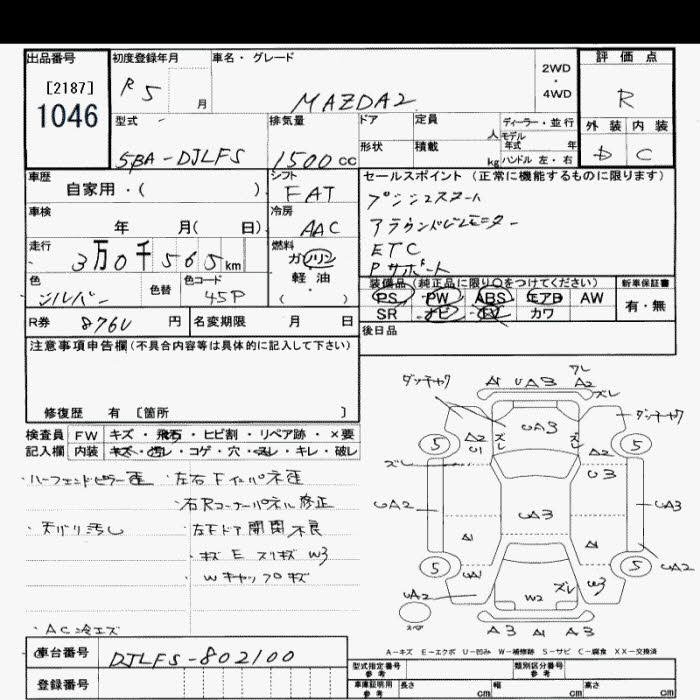 出品番号
[2187]
1046
初度登録年月
R5
月
車名・グレード
MAZDA2
2WD
・
4WD
評価点
R
外装 内装
D C
型式
5BA-DJLFS
排気量
1500cc
ドア
定員
人
形状
積載
kg
ディーラー・並行
モデル
年式 年
ハンドル 左・右
車歴
自家用・( )
シフト
FAT
車検
年 月( 日)
冷房
AAC
走行
3万0千565km
燃料
ガソリン
軽油
( )
色
シルバー
色替
色コード
45P
R券
8760円
名変期限 月 日
セールスポイント(正常に機能するものに限ります)
プッシュスタート
アラウンドビューモニター
ETC
Pサポート
装備品(純正品に限り○をつけてください)
PS PW ABS エアB AW
SR ナビ TV カワ
新車保証書
有・無
後日品
注意事項申告欄(不具合内容等は具体的に記入して下さい)
修復歴 有 [箇所 ]
検査員 FW キズ・飛石・ヒビ割・リペア跡・×要
記入欄 内装 キズ・汚レ・コゲ・穴・スレ・キレ・破レ
左右Fインパネ歪
右Rコーナーパネル修正
天バリ汚し
左Fドア開閉不良
キズ E スリキズ W3
Wキャップキズ
AC冷エズ
車台番号
DJLFS-802100
登録番号
ダッチャク
A1 UA3 A2
ズレ
ダッチャク
UA3
ズレ
ズレ
5
A2
U1
A2
5
ズレ
U3
UA2
UA3
UA3
A1
A1
5
UA1
W3
5
UA2
UA2
W2
ズレ
スペア
A3 A1 A3
A-キズ E-エクボ U-凹み W-補修跡 S-サビ C-腐食 XX-交換済
型式指定番号
参考
類別区分番号
参考
車庫証明用
参考
長さ cm
幅 cm
高さ cm